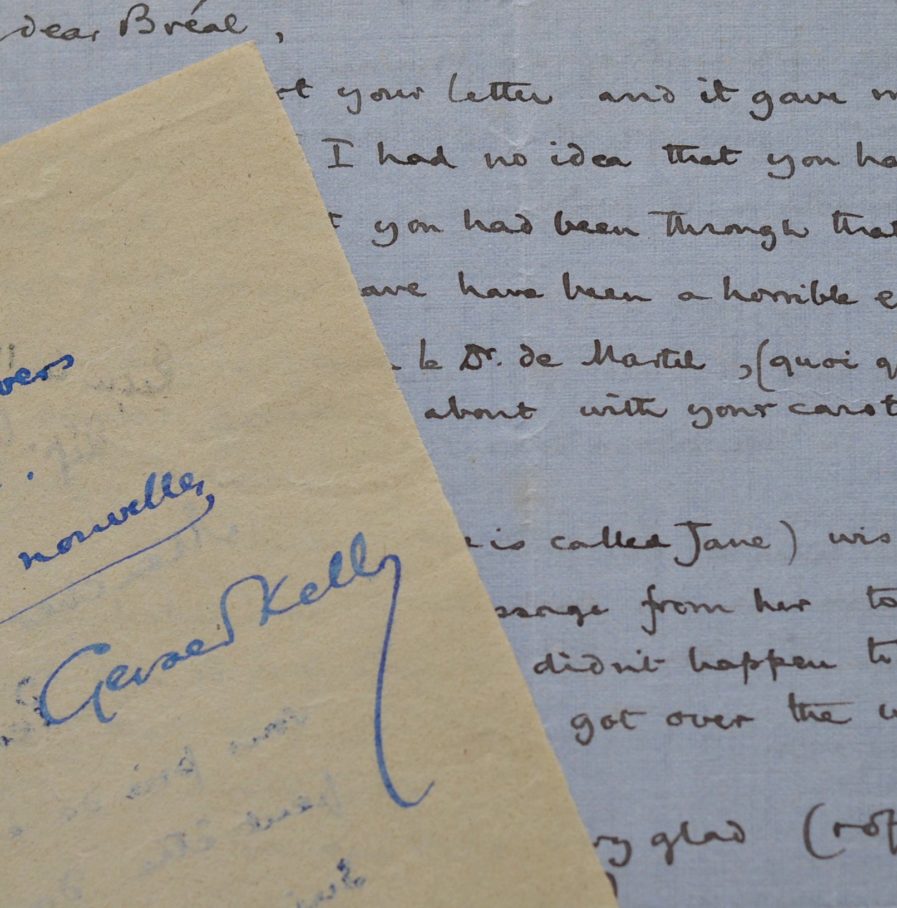 dear Bréal,
your letter and it gave
I had no idea that you ha
you had been through that
ave have been a horrible e
le Dr. de Martel, (quoi q
about with your carot
is called Jane) wis
ssage from her to
didn't happen to
got over the
ry glad (rof
vers
nouvelles
Gerald Kelly